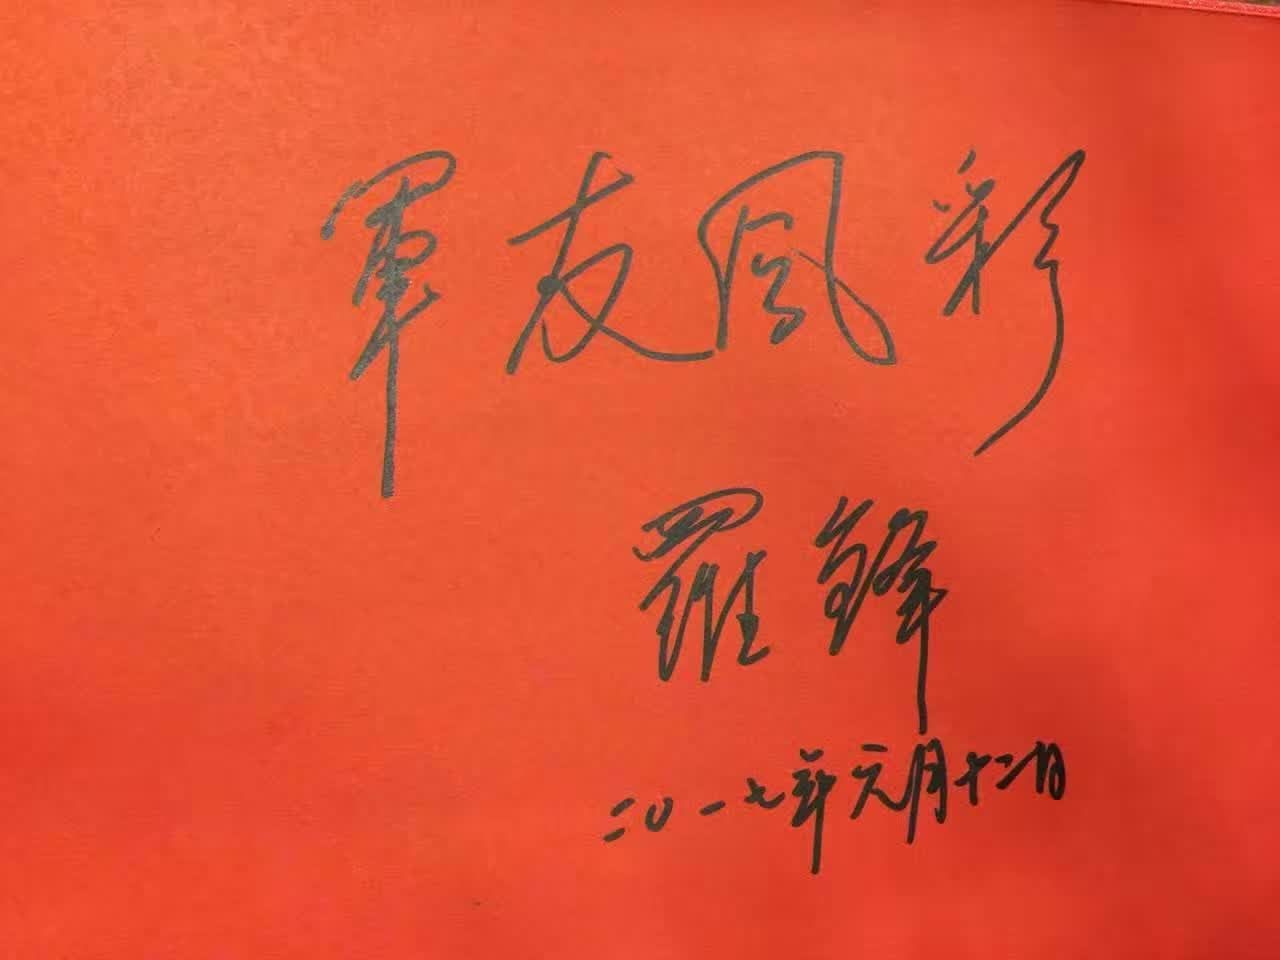 軍友風彩
羅鋒
二〇一七年元月十二日